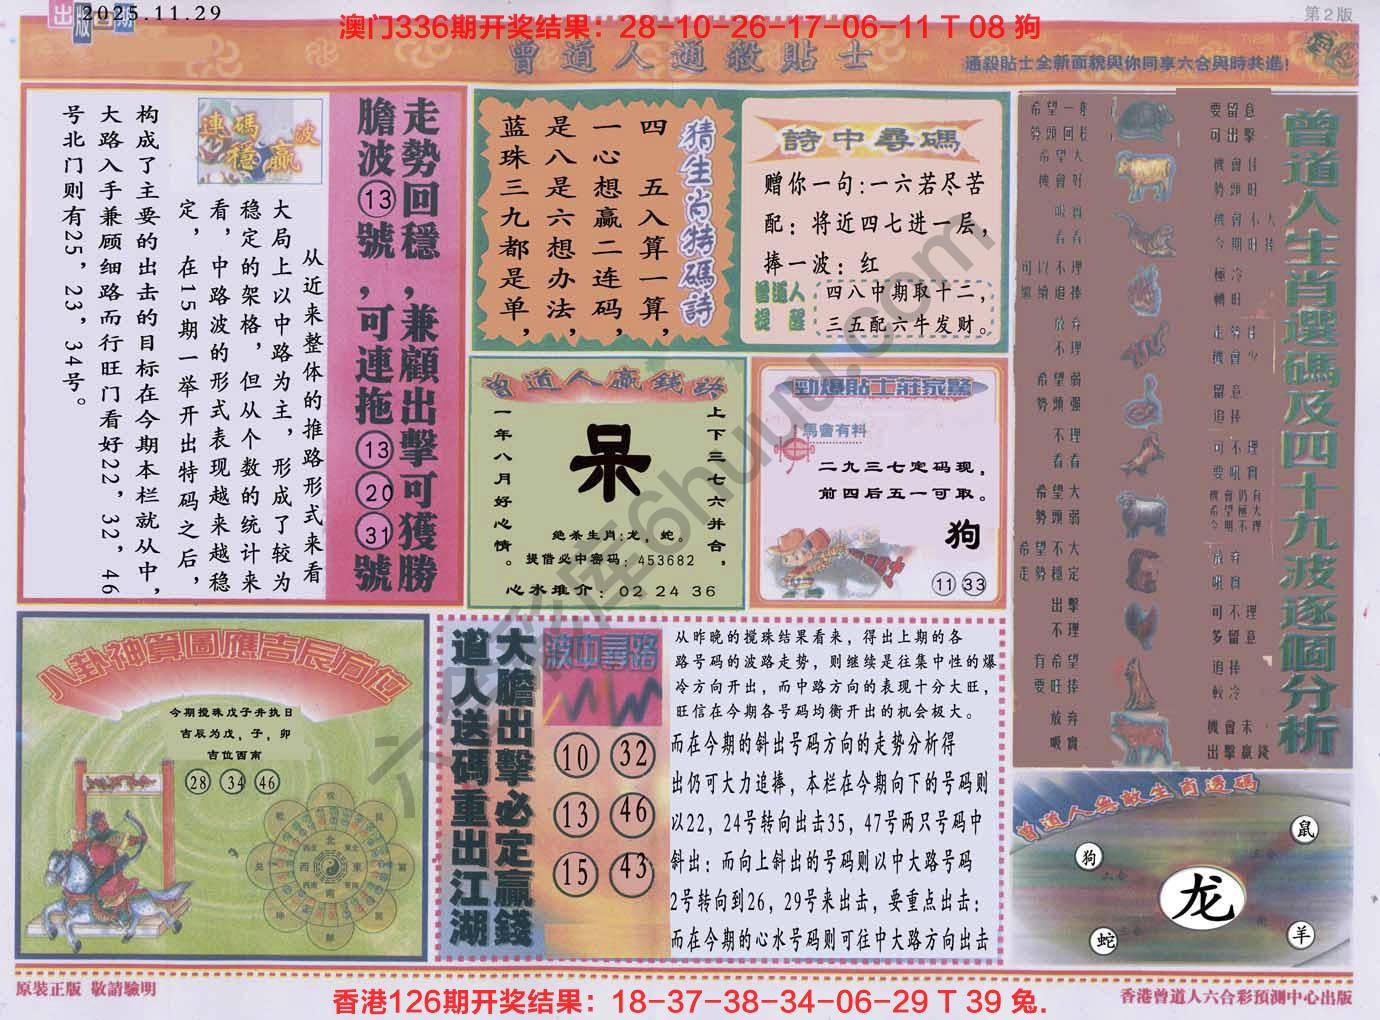 出版日期
2025.11.29
澳门336期开奖结果：28-10-26-17-06-11 T 08 狗
第2版
曾道人通殺貼士
通殺貼士全新面貌與你同享六合與時共進!
走勢回穩,兼顧出擊可獲勝
膽波⑬號,可連拖⑬⑳㉛號
連碼波
穩贏
从近来整体的推路形式来看
大局上以中路为主，形成了较为
稳定的架格，但从个数的统计来
看，中路波的形式表现越来越稳
定，在15期一举开出特码之后，
构成了主要的出击的目标在今期本栏就从中，
大路入手兼顾细路而行旺门看好22，32，46
号北门则有25，23，34号。
猜生肖特碼詩
四 五入算一算，
一心想赢二连码，
是八是六想办法，
蓝珠三九都是单，
詩中尋碼
赠你一句:一六若尽苦
配：将近四七进一层，
捧一波：红
曾道人
提醒
四八中期取十二，
三五配六牛发财。
曾道人贏錢訣
上下三七六并合，
一年八月好心情。
呆
绝杀生肖:龙，蛇。
提借必中密码：453682
心水堆介：02 24 36
勁爆貼士莊家驚
馬會有料
二九三七定码现，
前四后五一可取。
狗
11 33
曾道人生肖選碼及四十九波逐個分析
希望一般
勢頭回穩
要留意
可出擊
希望大
機會好
機會佳
勢頭旺
吸實
看看
機會不大
今期旺捧
可以不理
繼續追捧
極冷
轉旺
放弃
不理
走勢佳
機會少
希望弱
勢頭强
留意
追捧
不理
看看
可不理
要吼實
希望大
勢頭弱
機會仍有
希望極大
今期不理
希望不大
走勢穩定
放弃
吸實
出擊
不理
可不理
多留意
有希望
要旺捧
追捧
較冷
放弃
吸實
機會未
出擊贏錢
八卦神算圖應吉辰方位
今期搅珠戊子并执日
吉辰为戊，子，卯
吉位西南
28 34 46
北
西 東
南
大膽出擊必定贏錢
道人送碼重出江湖
波中尋路
10 32
13 46
15 43
从昨晚的搅珠结果看来，得出上期的各
路号码的波路走势，则继续是往集中性的爆
冷方向开出，而中路方向的表现十分大旺，
旺信在今期各号码均衡开出的机会极大。
而在今期的斜出号码方向的走势分析得
出仍可大力追捧，本栏在今期向下的号码则
以22，24号转向出击35，47号两只号码中
斜出：而向上斜出的号码则以中大路号码
2号转向到26，29号来出击，要重点出击：
而在今期的心水号码则可往中大路方向出击
曾道人無敵生肖透碼
鼠
狗
龙
蛇
羊
六彩库6huu.com
原裝正版 敬請驗明
香港126期开奖结果：18-37-38-34-06-29 T 39 兔.
香港曾道人六合彩預測中心出版